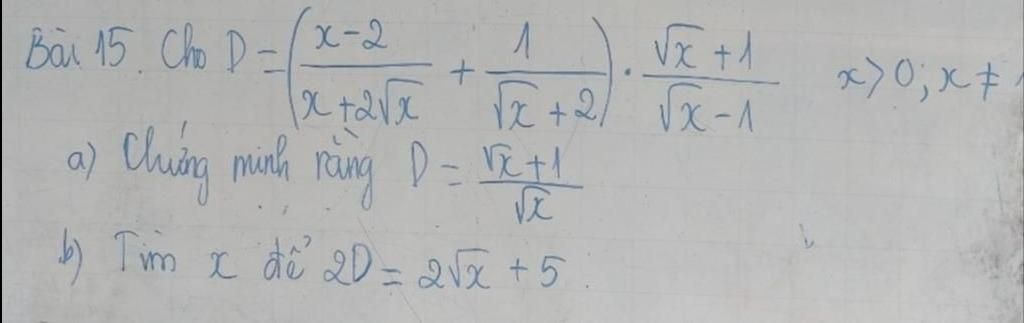 Bài 15. Cho D = ((x-2)/(x+2√x) + 1/(√x+2)) · (√x+1)/(√x-1) x>0; x≠1
a) Chứng minh rằng D = (√x+1)/√x
b) Tìm x để 2D = 2√x + 5.